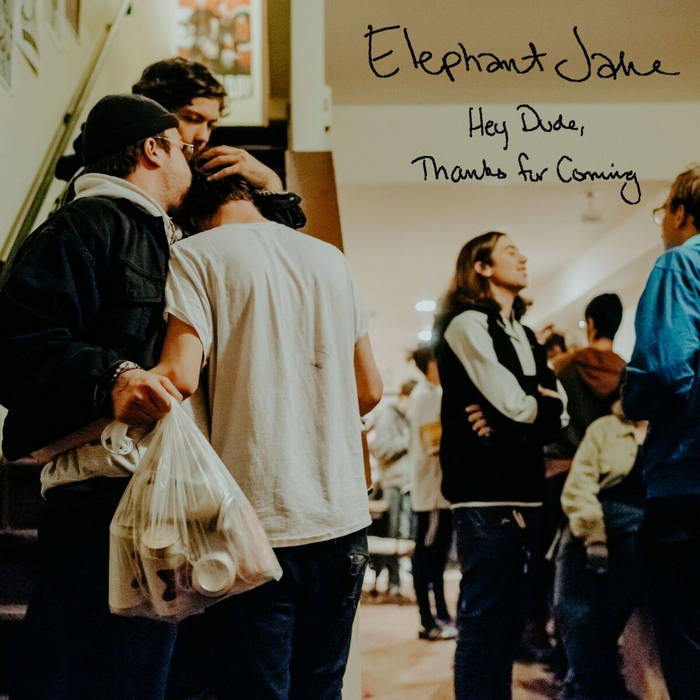 Elephant Jake
Hey Dude,
Thanks for Coming